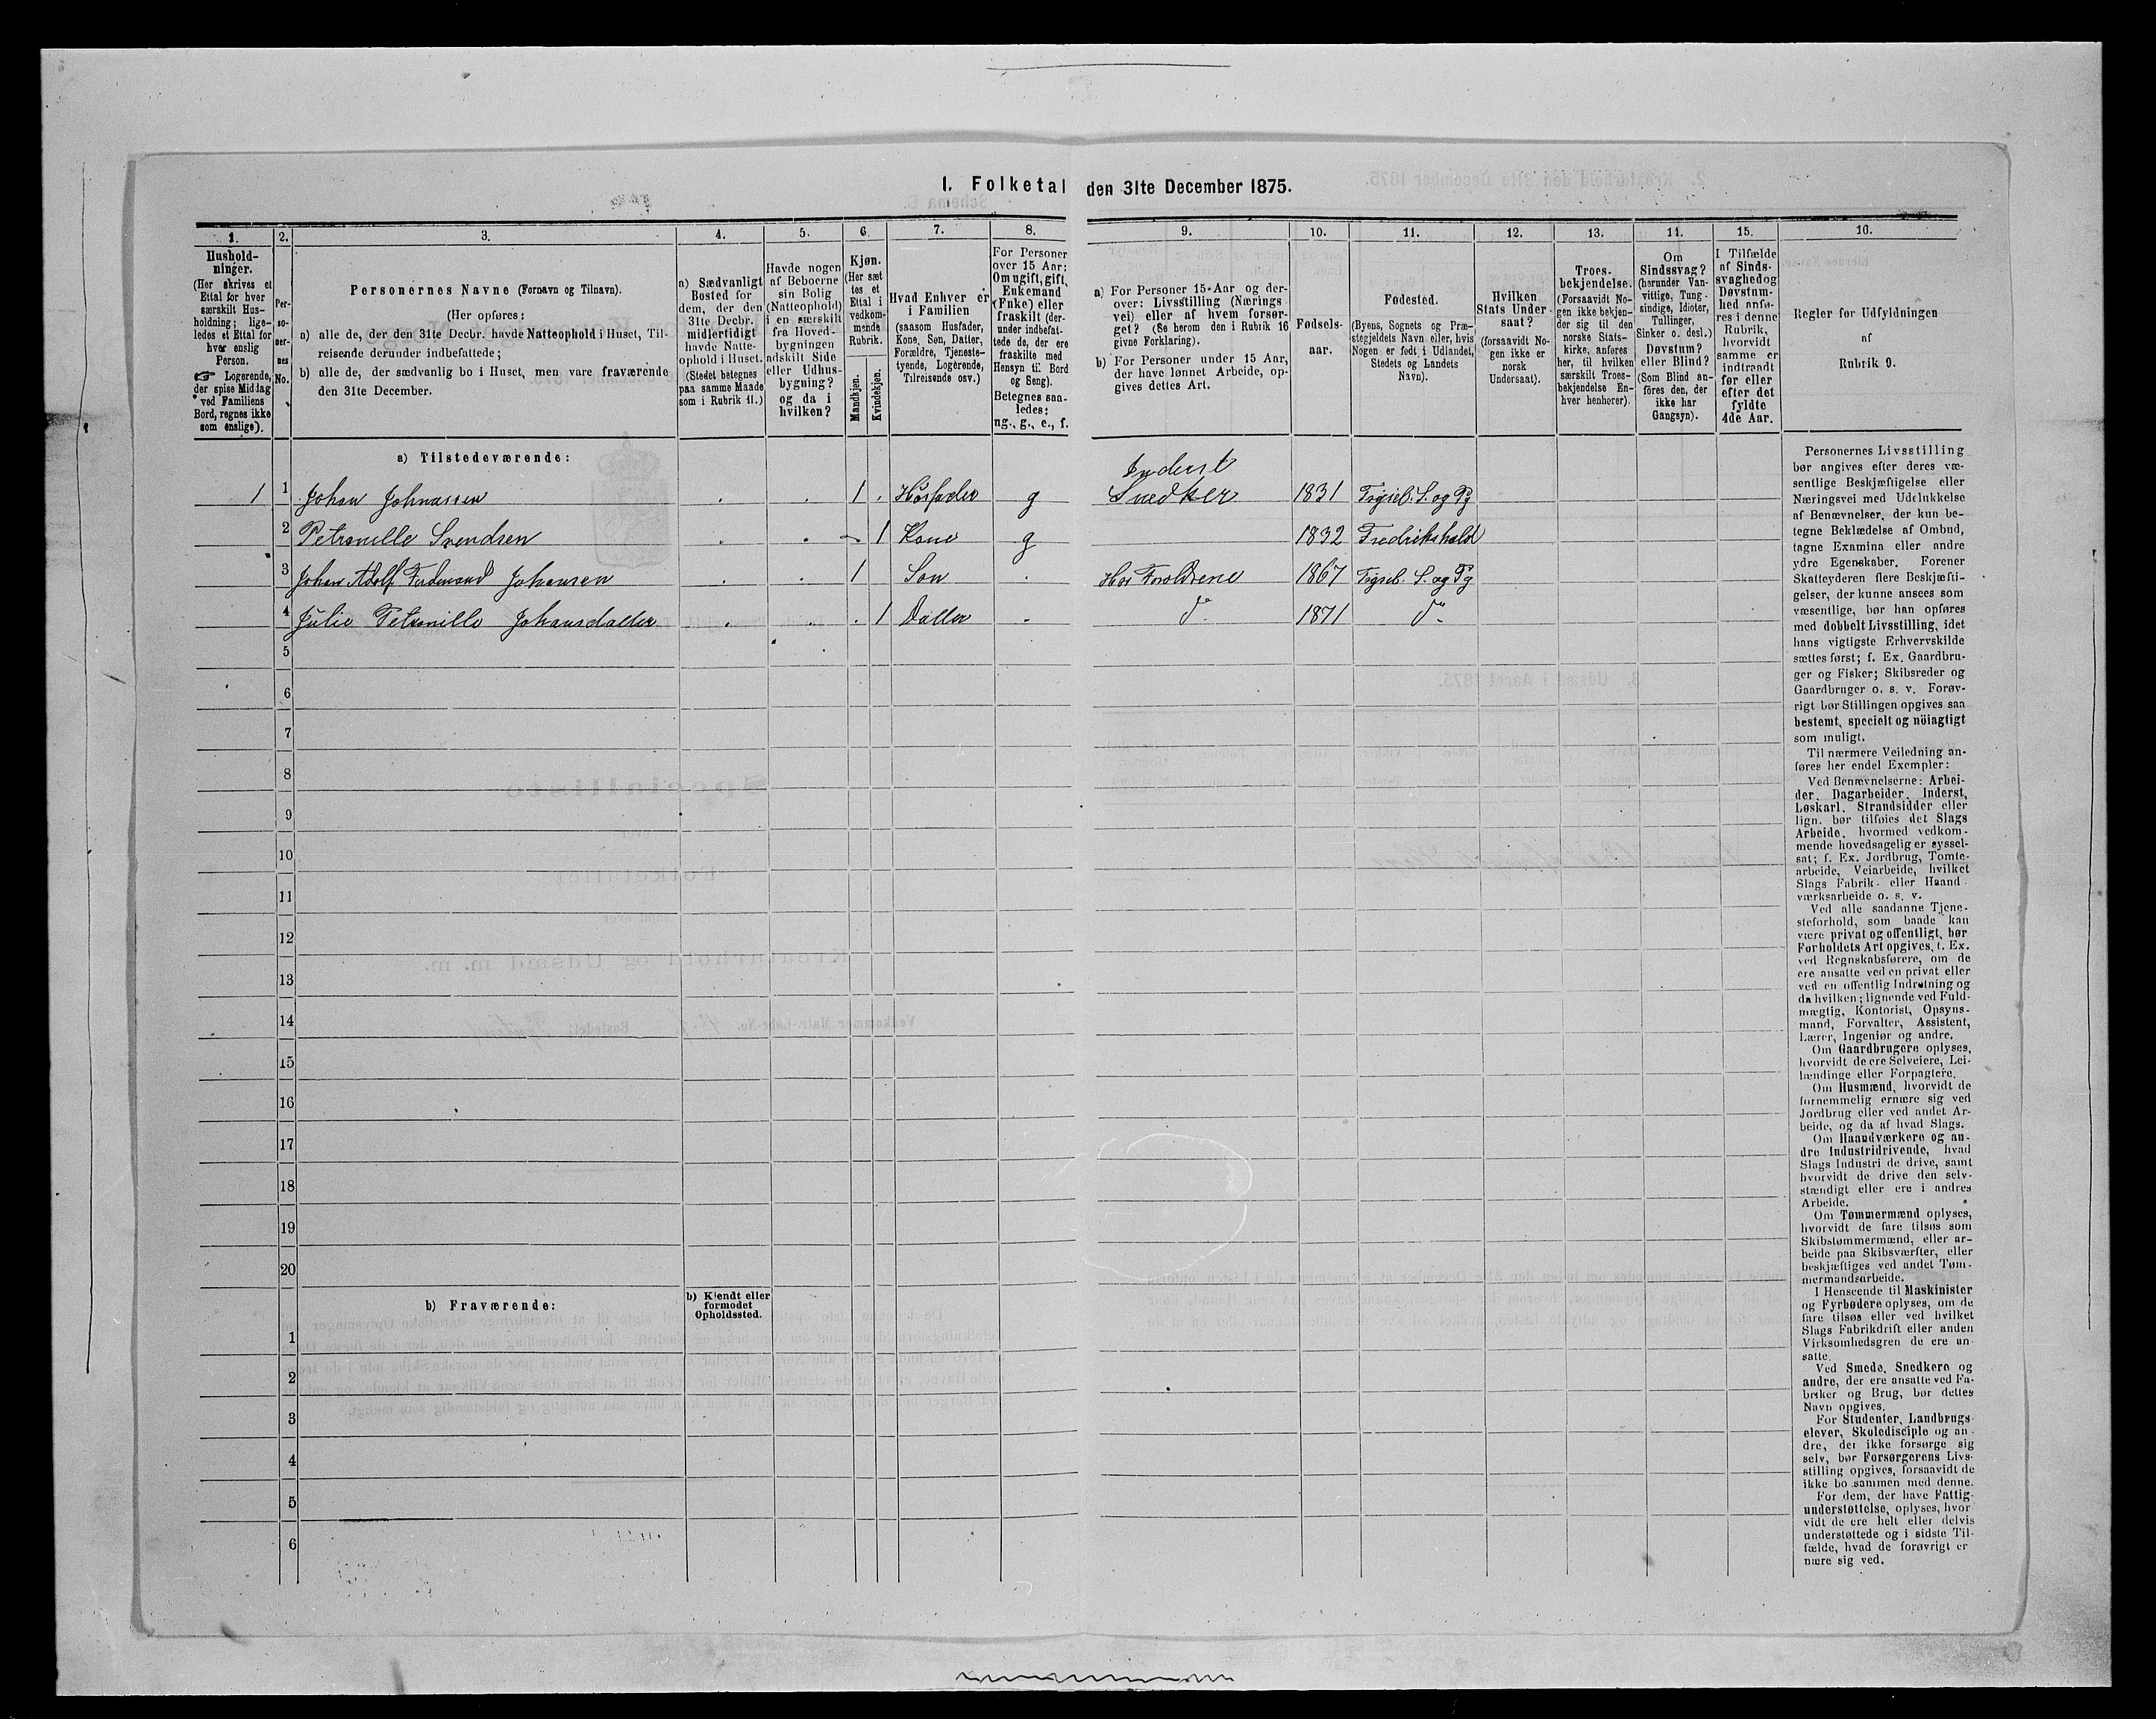 I. Folketal den 31te December 1875.
1. 2. 3. 4. 5. 6. 7. 8. 9. 10. 11. 12. 13. 14. 15. 16.
Hushold-
ninger.
(Her skrives et
Ettal for hver
særskilt Hus-
holdning; lige-
ledes et Ettal for
hver enslig
Person.
☞ Logerende,
der spise Middag
ved Familiens
Bord, regnes ikke
som enslige).
Per-
so-
ner-
nes
No.
Personernes Navne (Fornavn og Tilnavn).
(Her opføres:
a) alle de, der den 31te Decbr. havde Natteophold i Huset, Til-
reisende derunder indbefattede;
b) alle de, der sædvanlig bo i Huset, men vare fraværende
den 31te December.
a) Sædvanligt
Bosted for
dem, der den
31te Decbr.
midlertidigt
havde Natte-
ophold i Huset.
(Stedet betegnes
paa samme Maade
som i Rubrik 11.)
Havde nogen
af Beboerne
sin Bolig
(Natteophold)
i en særskilt
fra Hoved-
bygningen
adskilt Side
eller Udhus-
bygning?
og da i
hvilken?
Kjøn.
(Her sæt
tes et
Ettal i
vedkom-
mende
Rubrik.
Mandkjøn.
Kvindekjøn.
Hvad Enhver er
i Familien
(saasom Husfader,
Kone, Søn, Datter,
Forældre, Tjeneste-
tyende, Logerende,
Tilreisende osv.)
For Personer
over 15 Aar:
Om ugift, gift,
Enkemand
(Enke) eller
fraskilt (der-
under indbefat-
tede de, der ere
fraskilte med
Hensyn til Bord
og Seng).
Betegnes saa-
ledes:
ug., g., e., f.
a) For Personer 15 Aar og der-
over: Livsstilling (Nærings
vei) eller af hvem forsør-
get? (Se herom den i Rubrik 16
givne Forklaring).
b) For Personer under 15 Aar,
der have lønnet Arbeide, op-
gives dettes Art.
Fødsels-
aar.
Fødested.
(Byens, Sognets og Præ-
stegjeldets Navn eller, hvis
Nogen er født i Udlandet,
Stedets og Landets
Navn).
Hvilken
Stats Under
saat?
(forsaavidt No-
gen ikke er
norsk
Undersaat).
Troes-
bekjendelse.
(Forsaavidt No-
gen ikke bekjen-
der sig til den
norske Stats-
kirke, anføres
her, til hvilken
særskilt Troes-
bekjendelse En-
hver henhører).
Om
Sindssvag?
(herunder Van-
vittige, Tung-
sindige, Idioter,
Tullinger,
Sinker o. desl.)
Døvstum?
eller Blind?
(Som Blind an-
føres den, der
ikke har
Gangsyn).
I Tilfælde
af Sinds-
svaghed og
Døvstum-
hed anfø-
res i denne
Rubrik,
hvorvidt
samme er
indtraadt
før eller
efter det
fyldte
4de Aar.
Regler for Udfyldningen
af
Rubrik 9.
a) Tilstedeværende:
Inderst
1 1 Johan Johnassen 1 Husfader g Snedker 1831 S. og Pg
2 Petronille Svendsen 1 Kone g 1832 Fredrikshald
3 Johan Adolf Ferdinand Johansen 1 Søn Hos Foreldrene 1867 S. og Pg
4 Julie Petronille Johansdatter 1 Datter do 1871 do
5
6
7
8
9
10
11
12
13
14
15
16
17
18
19
20
b) Fraværende:
b) Kjendt eller
formodet
Opholdssted.
1
2
3
4
5
6
Personernes Livsstilling
bør angives efter deres væ-
sentlige Beskjæftigelse eller
Næringsvei med Udelukkelse
af Benævnelser, der kun be-
tegne Beklædelse af Ombud,
tagne Examina eller andre
ydre Egenskaber. Forener
Skatteyderen flere Beskjæfti-
gelser, der kunne ansees som
væsentlige, bør han opføres
med dobbelt Livsstilling, idet
hans vigtigste Erhvervskilde
sættes først; f. Ex. Gaardbru-
ger og Fisker; Skibsreder og
Gaardbruger o. s. v. Forøv-
rigt bør Stillingen opgives saa
bestemt, specielt og nöiagtigt
som muligt.
Til nærmere Veiledning an-
føres her endel Exempler:
Ved Benævnelserne: Arbei-
der, Dagarbeider, Inderst,
Løskarl, Strandsidder eller
lign. bør tilføies det Slags
Arbeide, hvormed vedkom-
mende hovedsagelig er syssel-
sat; f. Ex. Jordbrug, Tomte-
arbeide, Veiarbeide, hvilket
Slags Fabrik- eller Haand
værksarbeide o. s. v.
Ved alle saadanne Tjene-
steforhold, som baade kan
være privat og offentligt, bør
Forholdets Art opgives, f. Ex.
ved Regnskabsførere, om de
ere ansatte ved en privat eller
ved en offentlig Indretning og
da hvilken; lignende ved Fuld-
mægtig, Kontorist, Opsyns-
mand, Forvalter, Assistent,
Lærer, Ingeniør og andre.
Om Gaardbrugere oplyses,
hvorvidt de ere Selveiere, Lei-
lændinge eller Forpagtere.
Om Husmænd, hvorvidt de
fornemmelig ernære sig ved
Jordbrug eller ved andet Ar-
beide, og da af hvad Slags.
Om Haandværkere og an-
dre Industridrivende, hvad
Slags Industri de drive, samt
hvorvidt de drive den selv-
stændigt eller ere i andres
Arbeide.
Om Tømmermænd oplyses,
hvorvidt de fare tilsøs som
Skibstømmermænd, eller ar-
beide paa Skibsværfter, eller
beskjæftiges ved andet Tøm-
mermandsarbeide.
I Henseende til Maskinister
og Fyrbødere oplyses, om de
fare tilsøs eller ved hvilket
Slags Fabrikdrift eller anden
Virksomhedsgren de ere an-
satte.
Ved Smede, Snedkere og
andre, der ere ansatte ved Fa-
briker og Brug, bør dettes
Navn opgives.
For Studenter, Landbrugs-
elever, Skoledisciple og an-
dre, der ikke forsørge sig
selv, bør Forsørgerens Livs-
stilling opgives, forsaavidt de
ikke bo sammen med denne.
For dem, der have Fattig-
understøttelse, oplyses, hvor
vidt de ere helt eller delvis
understøttede og i sidste Til-
fælde, hvad de forøvrigt er
nære sig ved.